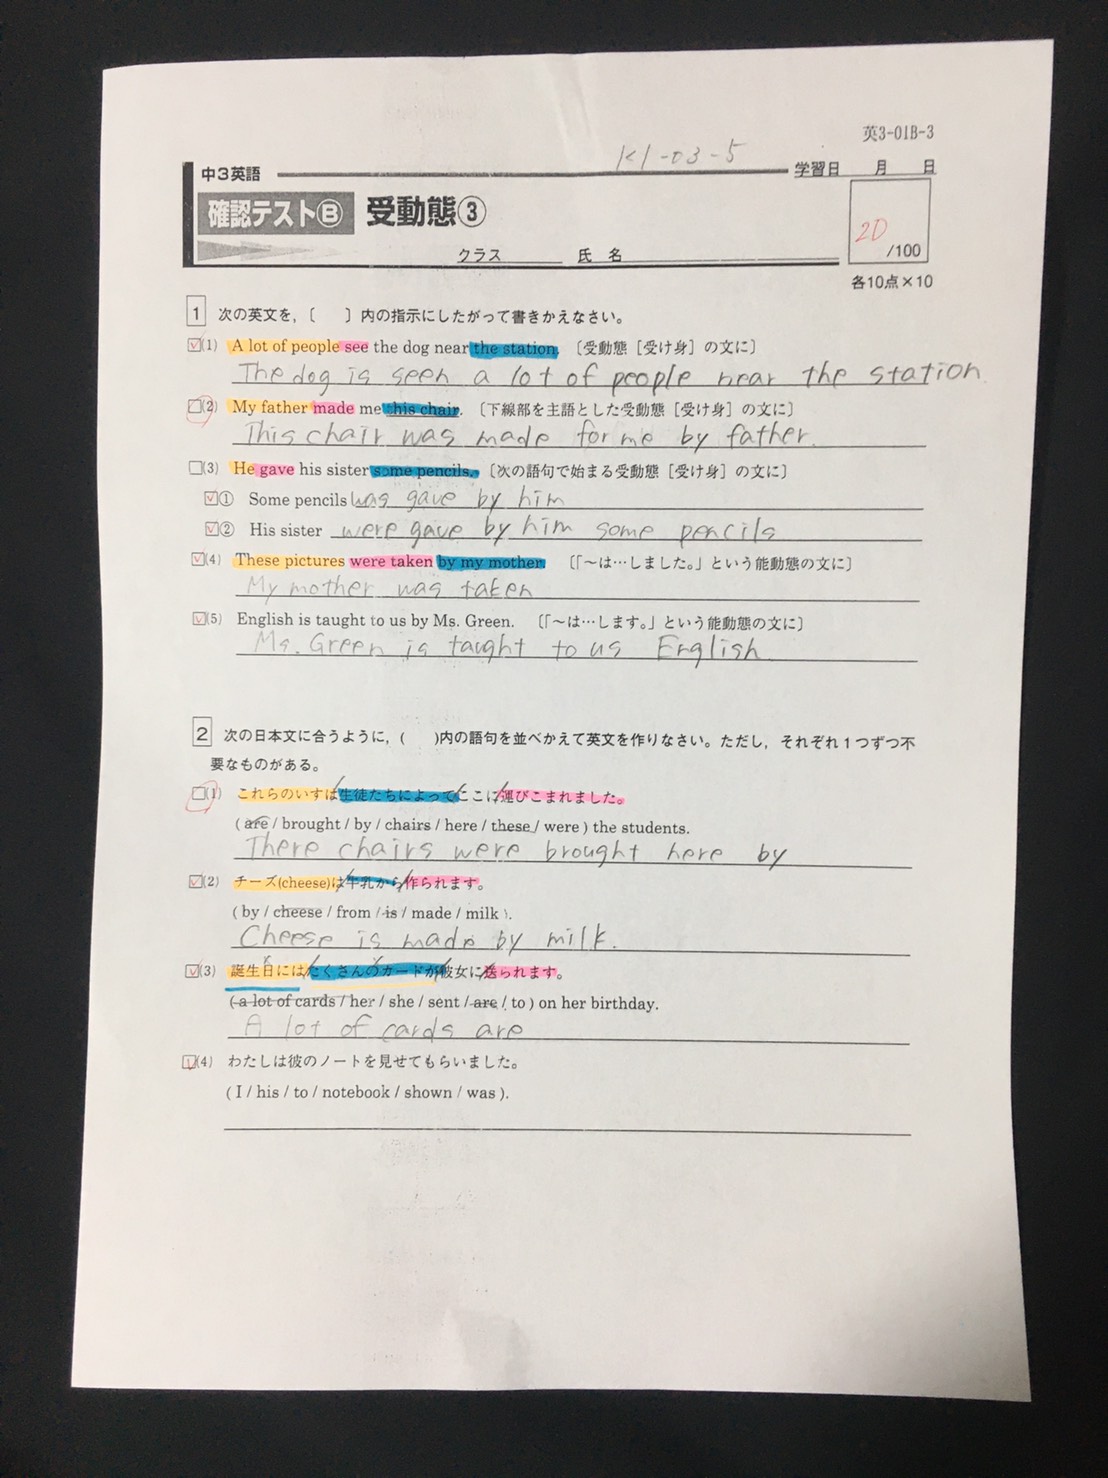 英3-01B-3
K1-03-5
中3英語
学習日 月 日
確認テストⒷ 受動態③
20
/100
クラス 氏 名
各10点×10
1 次の英文を，〔 〕内の指示にしたがって書きかえなさい。
(1) A lot of people see the dog near the station. 〔受動態［受け身］の文に〕
The dog is seen a lot of people near the station
(2) My father made me this chair. 〔下線部を主語とした受動態［受け身］の文に〕
This chair was made for me by father.
(3) He gave his sister some pencils. 〔次の語句で始まる受動態［受け身］の文に〕
① Some pencils was gave by him
② His sister were gave by him some pencils
(4) These pictures were taken by my mother. 〔「〜は…しました。」という能動態の文に〕
My mother was taken
(5) English is taught to us by Ms. Green. 〔「〜は…します。」という能動態の文に〕
Ms. Green is taught to us English
2 次の日本文に合うように，( )内の語句を並べかえて英文を作りなさい。ただし，それぞれ１つずつ不
要なものがある。
(1) これらのいすは生徒たちによってここに運びこまれました。
( are / brought / by / chairs / here / these / were ) the students.
There chairs were brought here by
(2) チーズ(cheese)は牛乳から作られます。
( by / cheese / from / is / made / milk ).
Cheese is made by milk.
(3) 誕生日にはたくさんのカードが彼女に送られます。
( a lot of cards / her / she / sent / are / to ) on her birthday.
A lot of cards are
(4) わたしは彼のノートを見せてもらいました。
( I / his / to / notebook / shown / was ).